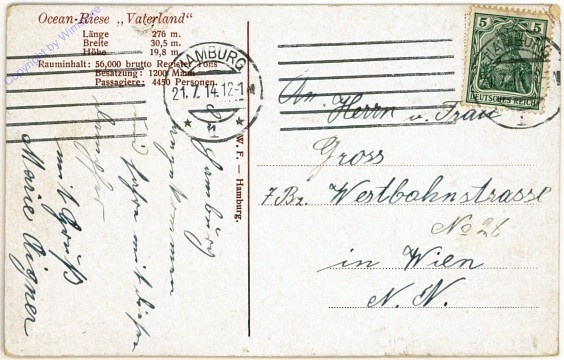 Ocean-Riese „Vaterland"
Länge 276 m.
Breite 30,5 m.
Höhe 19,8 m.
Rauminhalt: 56,000 brutto Register Tons
Besatzung: 1200 Mann
Passagiere: 4450 Personen.
HAMBURG
21.7.14.12-1
* 1 *
5 5
DEUTSCHES REICH
HAMBURG
W. F. — Hamburg.
An Herrn u. Frau
Gross
7 Bz Westbahnstrasse
No 28
in Wien
N. N.
Hamburg
angekommen
fahre mit diesen
mit Gruß
Marie Aigner
Copyright by